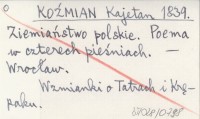 KOŹMIAN Kajetan 1839.
Ziemiaństwo polskie. Poema
w czterech pieśniach. —
Wrocław.
Wzmianki o Tatrach i Krę-
paku.